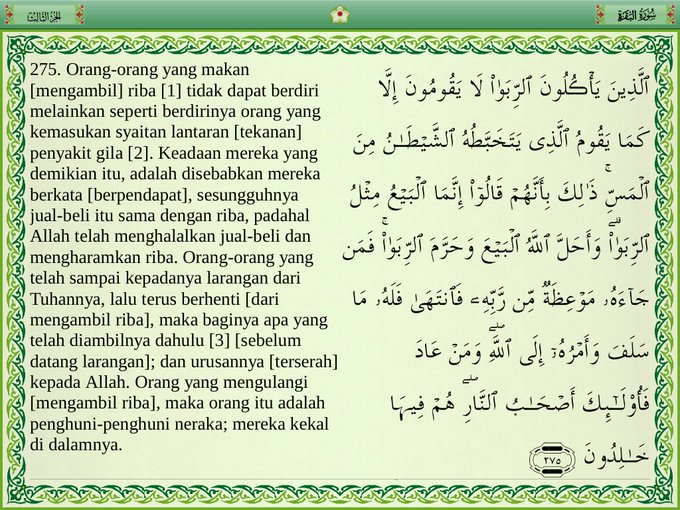 الجزء الثالث
سورة البقرة
275. Orang-orang yang makan
[mengambil] riba [1] tidak dapat berdiri
melainkan seperti berdirinya orang yang
kemasukan syaitan lantaran [tekanan]
penyakit gila [2]. Keadaan mereka yang
demikian itu, adalah disebabkan mereka
berkata [berpendapat], sesungguhnya
jual-beli itu sama dengan riba, padahal
Allah telah menghalalkan jual-beli dan
mengharamkan riba. Orang-orang yang
telah sampai kepadanya larangan dari
Tuhannya, lalu terus berhenti [dari
mengambil riba], maka baginya apa yang
telah diambilnya dahulu [3] [sebelum
datang larangan]; dan urusannya [terserah]
kepada Allah. Orang yang mengulangi
[mengambil riba], maka orang itu adalah
penghuni-penghuni neraka; mereka kekal
di dalamnya.
ٱلَّذِينَ يَأۡكُلُونَ ٱلرِّبَوٰاْ لَا يَقُومُونَ إِلَّا
كَمَا يَقُومُ ٱلَّذِى يَتَخَبَّطُهُ ٱلشَّيۡطَـٰنُ مِنَ
ٱلۡمَسِّ‌ۚ ذَٲلِكَ بِأَنَّهُمۡ قَالُوٓاْ إِنَّمَا ٱلۡبَيۡعُ مِثۡلُ
ٱلرِّبَوٰاْ‌ۗ وَأَحَلَّ ٱللَّهُ ٱلۡبَيۡعَ وَحَرَّمَ ٱلرِّبَوٰاْ‌ۚ فَمَن
جَآءَهُ ۥ مَوۡعِظَةٌ مِّن رَّبِّهِۦ فَٱنتَهَىٰ فَلَهُ ۥ مَا
سَلَفَ وَأَمۡرُهُ ۥۤ إِلَى ٱللَّهِ‌ۖ وَمَنۡ عَادَ
فَأُوْلَـٰٓٮِٕكَ أَصۡحَـٰبُ ٱلنَّارِ‌ۖ هُمۡ فِيہَا
خَـٰلِدُونَ ٢٧٥